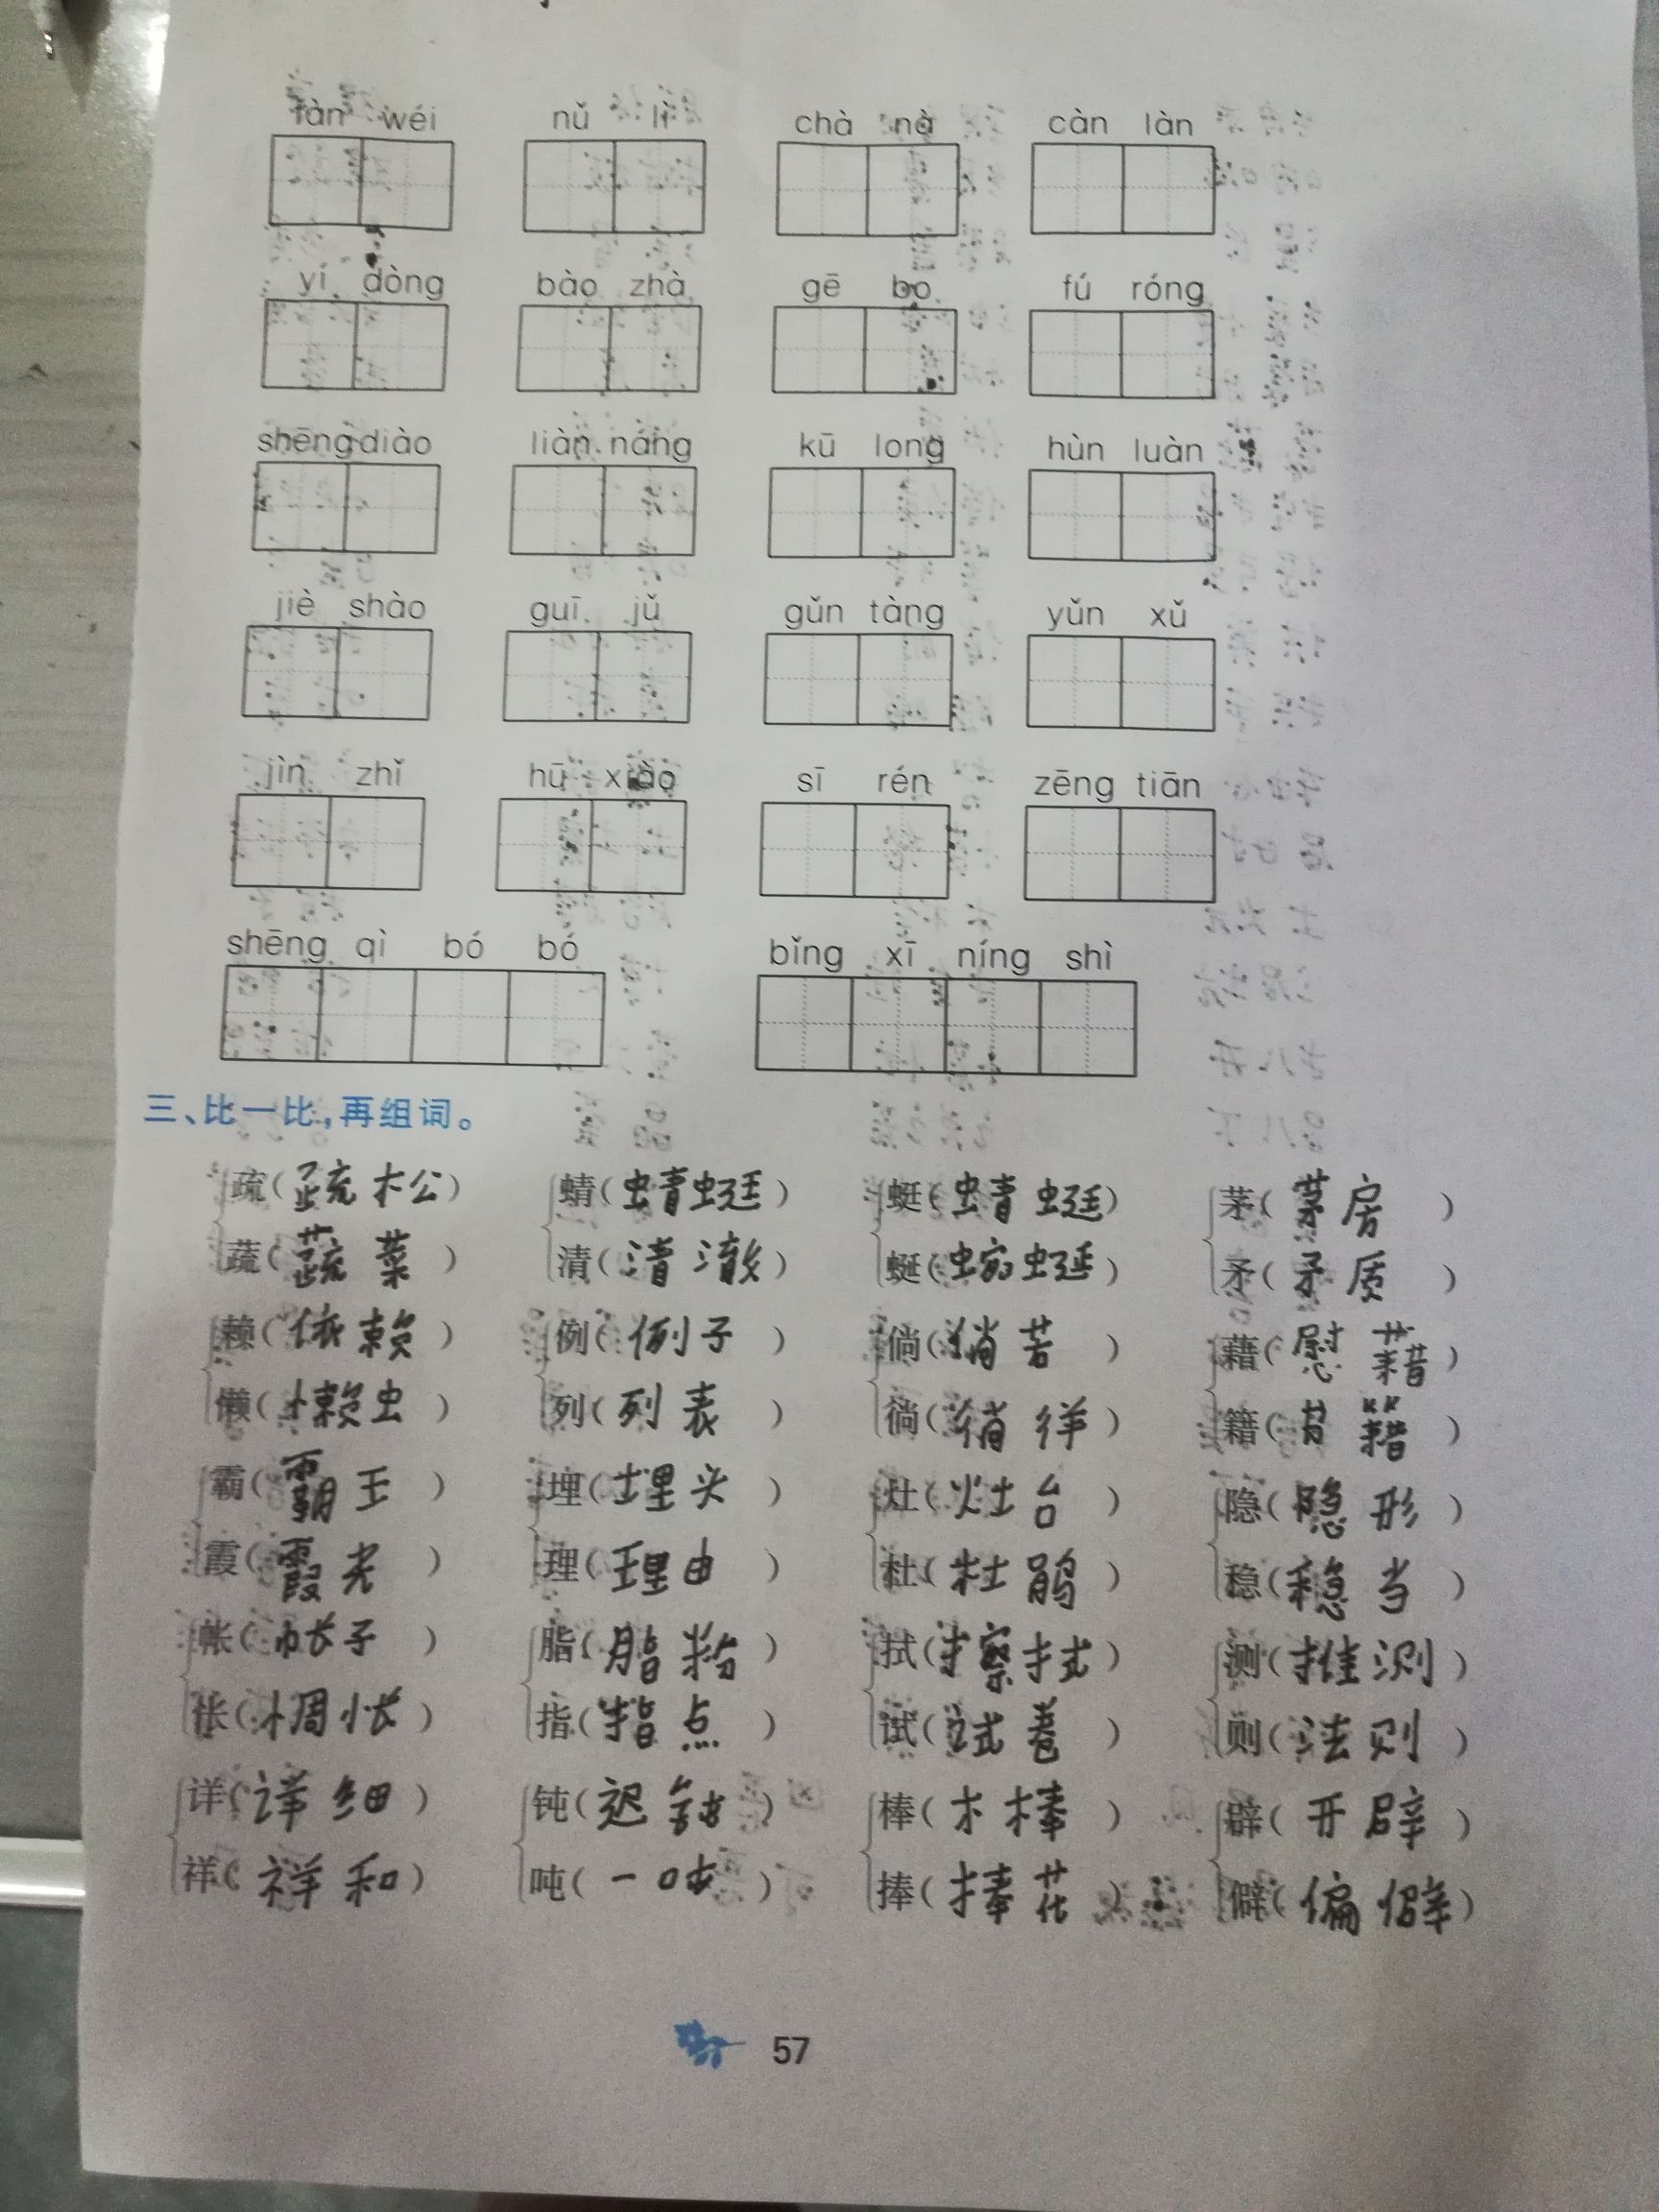 fàn wéi nǔ lì chà nà càn làn
yí dòng bào zhà gē bo fú róng
shēng diào liàn náng kū long hùn luàn
jiè shào guī jǔ gǔn tàng yǔn xǔ
jìn zhǐ hū xiào sī rén zēng tiān
shēng qì bó bó bǐng xī níng shì
三、比一比,再组词。
疏(疏松) 蜻(蜻蜓) 蜓(蜻蜓) 茅(茅房)
蔬(蔬菜) 清(清澈) 蜒(蜿蜒) 矛(矛质)
赖(依赖) 例(例子) 倘(倘若) 藉(慰藉)
懒(懒虫) 列(列表) 徜(徜徉) 籍(书籍)
霸(霸王) 埋(埋头) 灶(灶台) 隐(隐形)
霞(霞光) 理(理由) 杜(杜鹃) 稳(稳当)
帐(帐子) 脂(脂粉) 拭(擦拭) 测(推测)
怅(惆怅) 指(指点) 试(试卷) 则(法则)
详(详细) 钝(迟钝) 棒(木棒) 辟(开辟)
祥(祥和) 吨(一吨) 捧(捧花) 僻(偏僻)
57